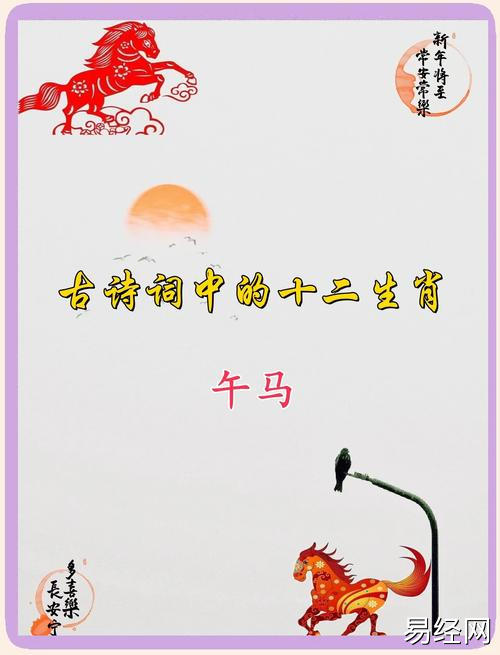 新年将至
常安常樂
古诗词中的十二生肖
午马
多喜樂
長安宁
易经网